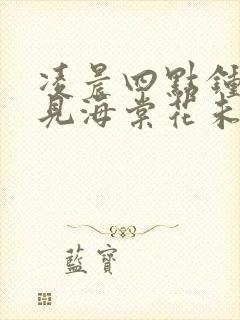 凌晨四點鐘
見海棠花未
藍寶